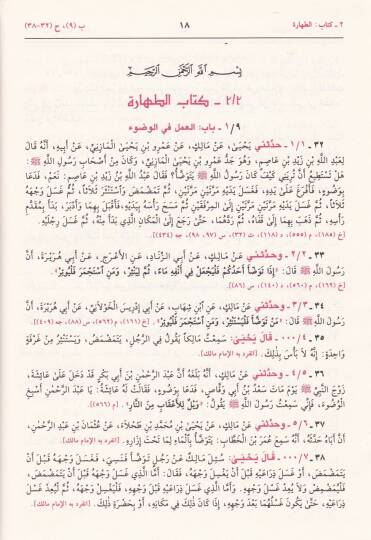 ٢ - كتاب: الطهارة ١٨ ب (٩)، ح (٣٢-٣٨)
بِسْمِ اللَّهِ الرَّحْمَنِ الرَّحِيمِ
٢/٢ - كتاب الطهارة
١/٩ - باب: العمل في الوضوء
٣٢ - ١/١ - حدّثني يَحْيَىٰ، عَنْ مَالِكٍ، عَنْ عَمْرِو بْنِ يَحْيَىٰ الْمَازِنِيِّ، عَنْ أَبِيهِ، أَنَّهُ قَالَ
لِعَبْدِ اللَّهِ بْنِ زَيْدِ بْنِ عَاصِمٍ، وَهُوَ جَدُّ عَمْرِو بْنِ يَحْيَىٰ الْمَازِنِيِّ، وَكَانَ مِنْ أَصْحَابِ رَسُولِ اللَّهِ ﷺ:
هَلْ تَسْتَطِيعُ أَنْ تُرِيَنِي كَيْفَ كَانَ رَسُولُ اللَّهِ ﷺ يَتَوَضَّأُ؟ فَقَالَ عَبْدُ اللَّهِ بْنُ زَيْدِ بْنِ عَاصِمٍ: نَعَمْ، فَدَعَا
بِوَضُوءٍ، فَأَفْرَغَ عَلَىٰ يَدِهِ، فَغَسَلَ يَدَيْهِ مَرَّتَيْنِ مَرَّتَيْنِ، ثُمَّ تَمَضْمَضَ وَاسْتَنْثَرَ ثَلَاثاً، ثُمَّ غَسَلَ وَجْهَهُ
ثَلَاثاً، ثُمَّ غَسَلَ يَدَيْهِ مَرَّتَيْنِ مَرَّتَيْنِ إِلَى الْمِرْفَقَيْنِ ثُمَّ مَسَحَ رَأْسَهُ بِيَدَيْهِ، فَأَقْبَلَ بِهِمَا وَأَدْبَرَ، بَدَأَ بِمُقَدَّمِ
رَأْسِهِ، ثُمَّ ذَهَبَ بِهِمَا إِلَىٰ قَفَاهُ، ثُمَّ رَدَّهُمَا، حَتَّىٰ رَجَعَ إِلَى الْمَكَانِ الَّذِي بَدَأَ مِنْهُ، ثُمَّ غَسَلَ رِجْلَيْهِ.
[خ (١٨٥)، م (٥٥٥)، د (١١٨)، ت (٣٢)، س (٩٧، ٩٨)، جه (٤٣٤)]
٣٣ - ٢/٢ - وحدّثني عَنْ مَالِكٍ، عَنْ أَبِي الزِّنَادِ، عَنِ الأَعْرَجِ، عَنْ أَبِي هُرَيْرَةَ، أَنَّ
رَسُولَ اللَّهِ ﷺ قَالَ: «إِذَا تَوَضَّأَ أَحَدُكُمْ فَلْيَجْعَلْ فِي أَنْفِهِ مَاءً، ثُمَّ لِيَنْثُرْ، وَمَنِ اسْتَجْمَرَ فَلْيُوتِرْ».
[خ (١٦٢)، م (٥٦٠)، د (١٤٠)، س (٨٦)]
٣٤ - ٣/٣ - وحدّثني عَنْ مَالِكٍ، عَنِ ابْنِ شِهَابٍ، عَنْ أَبِي إِدْرِيسَ الْخَوْلَانِيِّ، عَنْ أَبِي هُرَيْرَةَ، أَنَّ
رَسُولَ اللَّهِ ﷺ قَالَ: «مَنْ تَوَضَّأَ فَلْيَسْتَنْثِرْ، وَمَنِ اسْتَجْمَرَ فَلْيُوتِرْ». [خ (١٦١)، م (٥٦٢)، س (٨٨)، جه (٤٠٩)]
٣٥ - ٠٠٠/٤ - قَالَ يَحْيَىٰ: سَمِعْتُ مَالِكاً يَقُولُ فِي الرَّجُلِ، يَتَمَضْمَضُ، وَيَسْتَنْثِرُ مِنْ غَرْفَةٍ
وَاحِدَةٍ: إِنَّهُ لَا بَأْسَ بِذٰلِكَ. [انفرد به الإمام مالك].
٣٦ - ٤/٥ - وحدّثني عَنْ مَالِكٍ، أَنَّهُ بَلَغَهُ أَنَّ عَبْدَ الرَّحْمٰنِ بْنَ أَبِي بَكْرٍ قَدْ دَخَلَ عَلَىٰ عَائِشَةَ،
زَوْجِ النَّبِيِّ ﷺ يَوْمَ مَاتَ سَعْدُ بْنُ أَبِي وَقَّاصٍ، فَدَعَا بِوَضُوءٍ، فَقَالَتْ لَهُ عَائِشَةُ: يَا عَبْدَ الرَّحْمٰنِ أَسْبِغِ
الْوُضُوءَ، فَإِنِّي سَمِعْتُ رَسُولَ اللَّهِ ﷺ يَقُولُ: «وَيْلٌ لِلْأَعْقَابِ مِنَ النَّارِ». [م (٥٦٦)].
٣٧ - ٥/٦ - وحدّثني عَنْ مَالِكٍ، عَنْ يَحْيَىٰ بْنِ مُحَمَّدِ بْنِ طَحْلَاءَ، عَنْ عُثْمَانَ بْنِ عَبْدِ الرَّحْمٰنِ،
أَنَّ أَبَاهُ حَدَّثَهُ، أَنَّهُ سَمِعَ عُمَرَ بْنَ الْخَطَّابِ: يَتَوَضَّأُ بِالْمَاءِ لِمَا تَحْتَ إِزَارِهِ. [انفرد به الإمام مالك].
٣٨ - ٠٠٠/٧ - قَالَ يَحْيَىٰ: سُئِلَ مَالِكٌ عَنْ رَجُلٍ تَوَضَّأَ فَنَسِيَ، فَغَسَلَ وَجْهَهُ قَبْلَ أَنْ
يَتَمَضْمَضَ، أَوْ غَسَلَ ذِرَاعَيْهِ قَبْلَ أَنْ يَغْسِلَ وَجْهَهُ، فَقَالَ: أَمَّا الَّذِي غَسَلَ وَجْهَهُ قَبْلَ أَنْ يَتَمَضْمَضَ،
فَلْيُمَضْمِضْ وَلَا يُعِدْ غَسْلَ وَجْهِهِ، وَأَمَّا الَّذِي غَسَلَ ذِرَاعَيْهِ قَبْلَ وَجْهِهِ، فَلْيَغْسِلْ وَجْهَهُ، ثُمَّ لْيُعِدْ غَسْلَ
ذِرَاعَيْهِ، حَتَّىٰ يَكُونَ غَسْلُهُمَا بَعْدَ وَجْهِهِ، إِذَا كَانَ ذٰلِكَ فِي مَكَانِهِ، أَوْ بِحَضْرَةِ ذٰلِكَ. [انفرد به الإمام مالك].